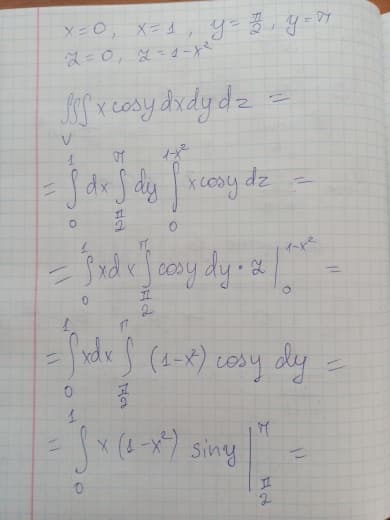 x=0, x=1, y=π/2, y=π
z=0, z=1-x²
∭ x cosy dxdydz =
V
= ∫₀¹ dx ∫_{π/2}^{π} dy ∫₀^{1-x²} x cosy dz =
= ∫₀¹ xdx ∫_{π/2}^{π} cosy dy · z |₀^{1-x²} =
= ∫₀¹ xdx ∫_{π/2}^{π} (1-x²) cosy dy =
= ∫₀¹ x (1-x²) siny |_{π/2}^{π} =